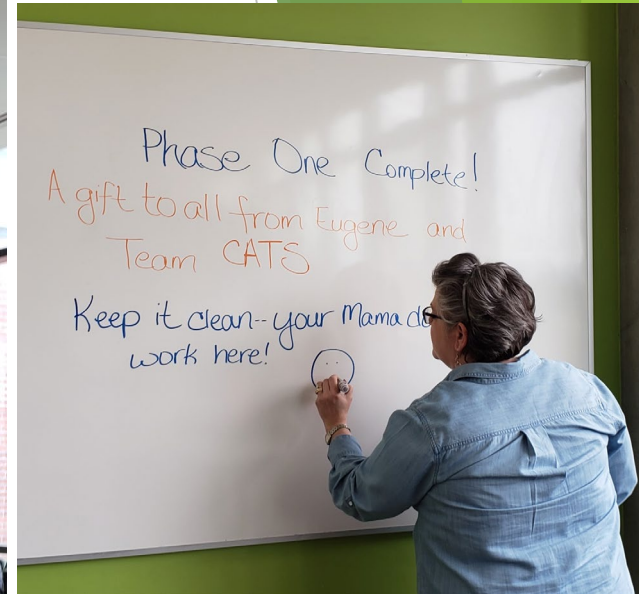 Phase One Complete!
A gift to all from Eugene and
Team CATS
Keep it clean--your Mama
work here!